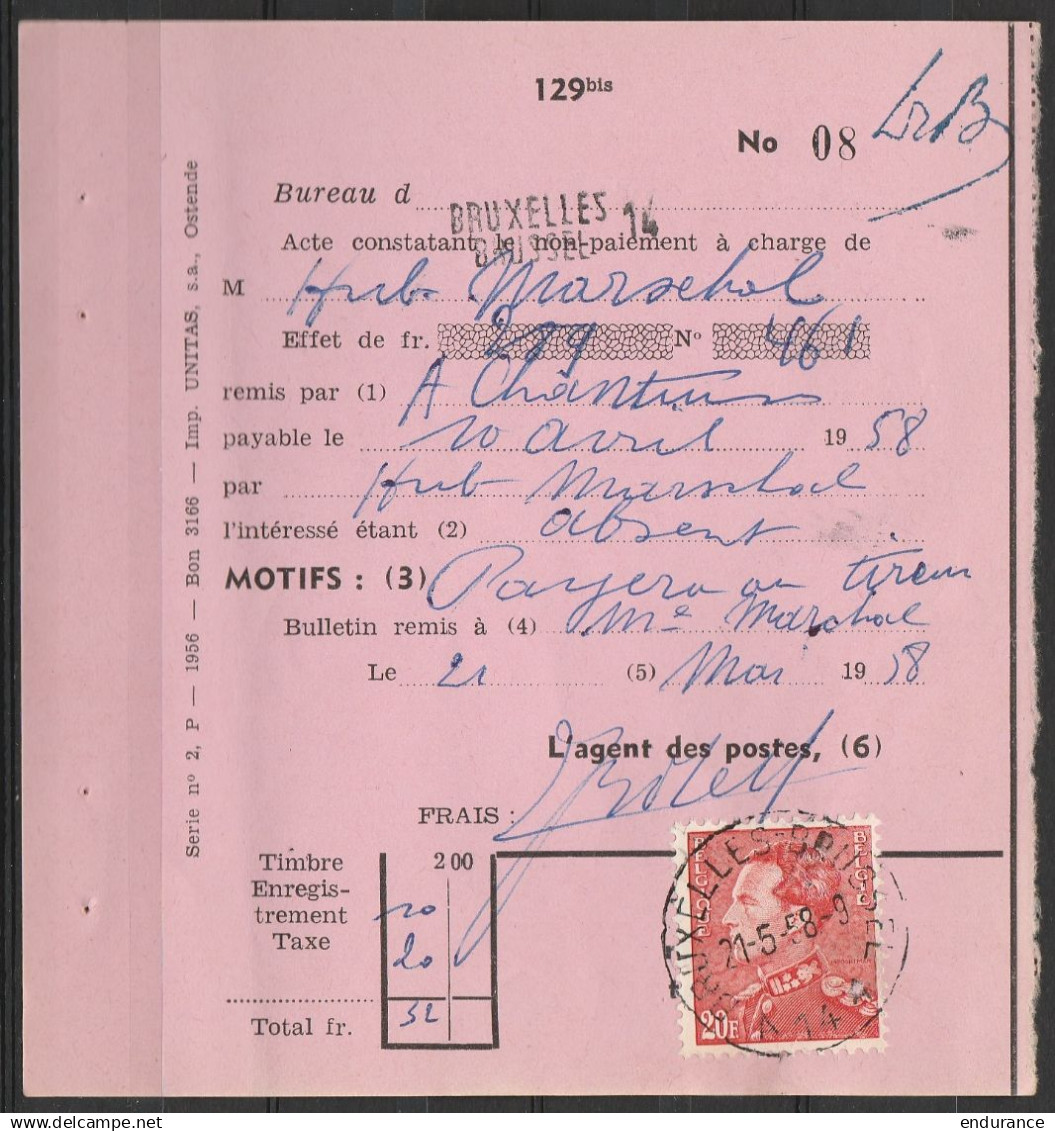 129bis
No 08
Bureau d
BRUXELLES 14
BRUSSEL
Acte constatant le non-paiement à charge de
M Hub Marschal
Effet de fr. No 461
remis par (1) A
payable le 10 avril 1958
par Hub Marschal
l'intéressé étant (2) absent
MOTIFS : (3) Payera au tireur
Bulletin remis à (4) Me Marchal
Le 21 (5) Mai 1958
L'agent des postes, (6)
FRAIS :
Timbre 2 00
Enregis-
trement 10
Taxe 20
Total fr. 32
BELGIQUE BELGIE
20F
BRUXELLES-BRUSSEL
21-5-58-9
14
Serie no 2, P — 1956 — Bon 3166 — Imp. UNITAS, s.a., Ostende
endurance